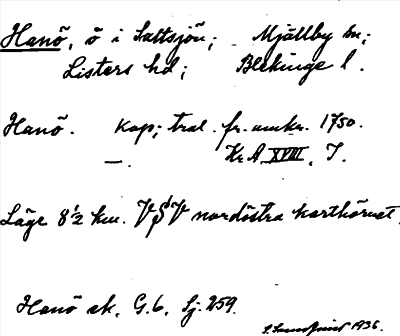 Hanö, ö i Saltsjön; Mjällby sn;
Listers hd; Blekinge l.
Hanö. Kop; tral. fr. omkr. 1750.
—. Kr A XVIII. I.
Läge 8½ km. VSV nordöstra karthörnet.
Hanö ek. G.6. Sj. 259.
1936.